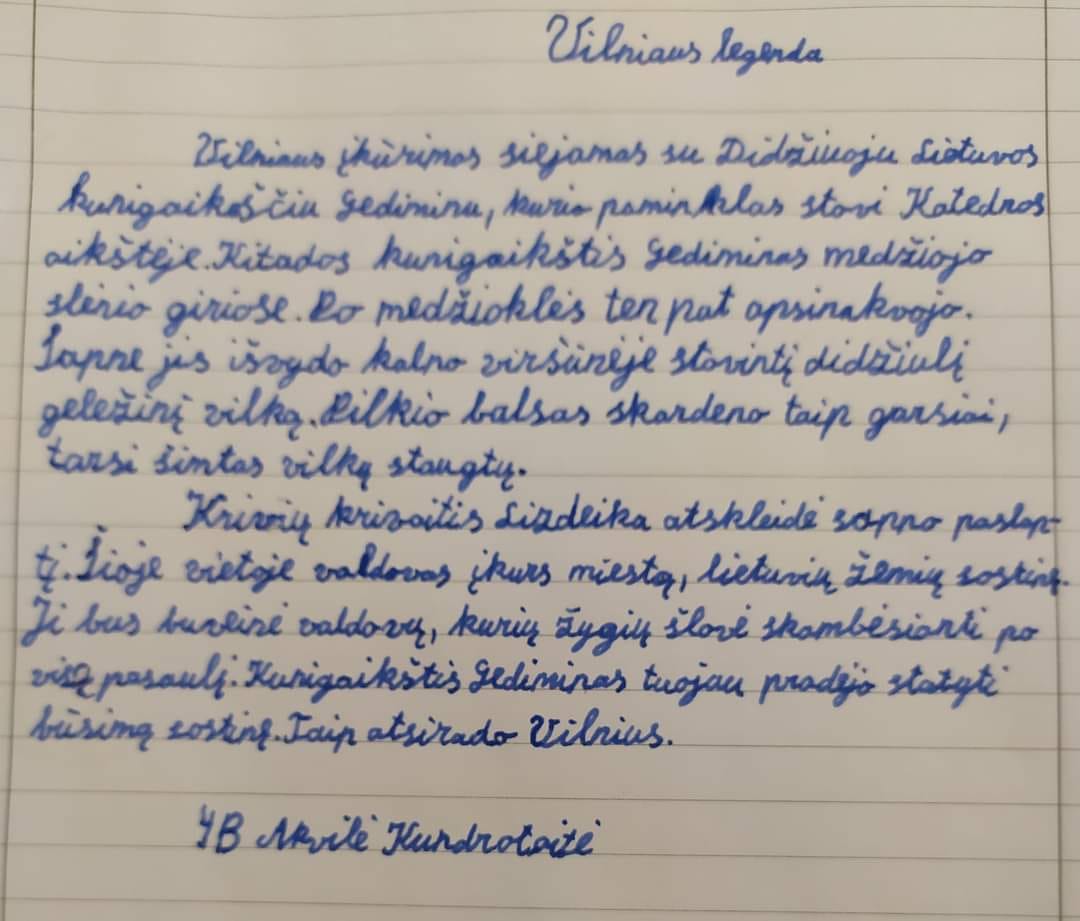 Vilniaus legenda
Vilniaus įkūrimas siejamas su Didžiuoju Lietuvos
kunigaikščiu Gediminu, kurio paminklas stovi Katedros
aikštėje. Kitados kunigaikštis Gediminas medžiojo
slėnio giriose. Po medžioklės ten pat apsinakvojo.
Sapne jis išvydo kalno viršūnėje stovintį didžiulį
geležinį vilką. Pilkio balsas skardeno taip garsiai,
tarsi šimtas vilkų staugtų.
Krivių krivaitis Lizdeika atskleidė sapno paslap-
tį. Šioje vietoje valdovas įkurs miestą, lietuvių žemių sostinę.
Ji bus buveinė valdovų, kurių žygių šlovė skambėsianti po
visą pasaulį. Kunigaikštis Gediminas tuojau pradėjo statyti
būsimą sostinę. Taip atsirado Vilnius.
4B Akvilė Kundrotaitė